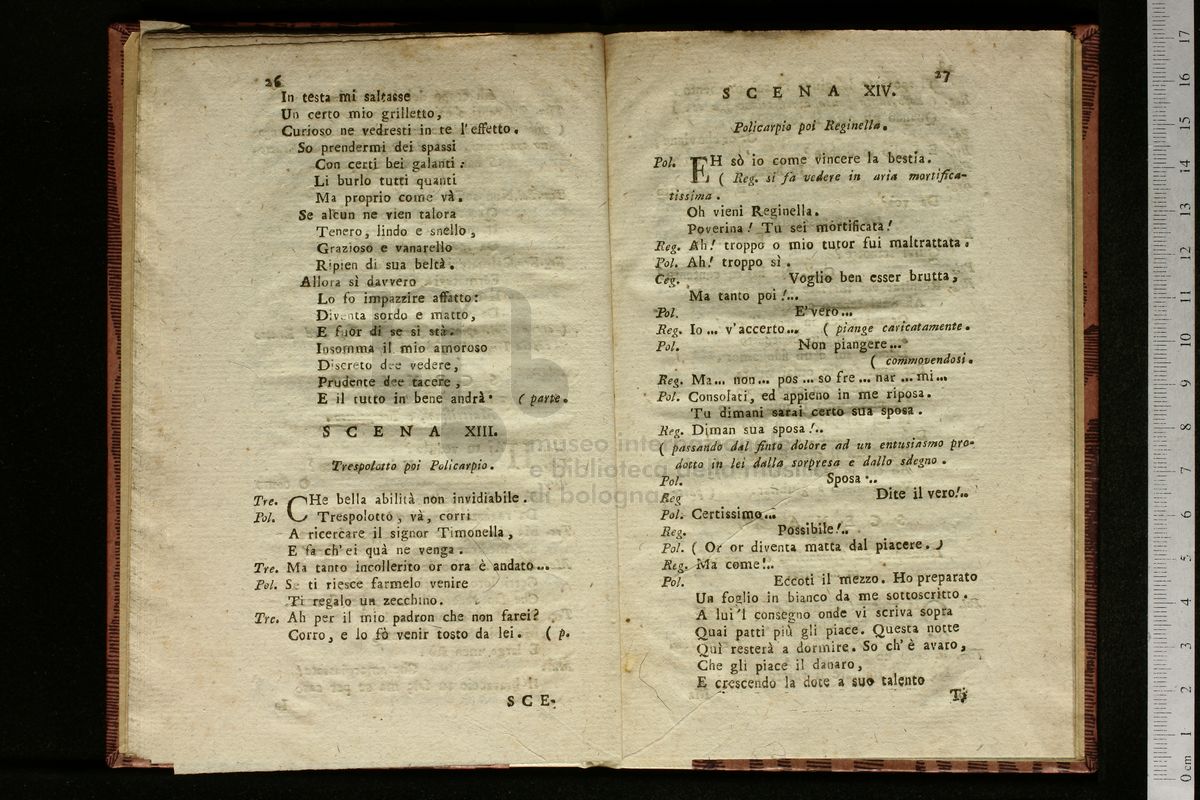 26
In testa mi saltasse
Un certo mio grilletto,
Curioso ne vedresti in te l'effetto.
So prendermi dei spassi
Con certi bei galanti:
Li burlo tutti quanti
Ma proprio come và.
Se alcun ne vien talora
Tenero, lindo e snello,
Grazioso e vanarello
Ripien di sua beltà.
Allora sì davvero
Lo fo impazzire affatto:
Diventa sordo e matto,
E fuor di se si stà.
Insomma il mio amoroso
Discreto dee vedere,
Prudente dee tacere,
E il tutto in bene andrà. (parte.
SCENA XIII.
Trespolotto poi Policarpio.
Tre. CHe bella abilità non invidiabile.
Pol. Trespolotto, và, corri
A ricercare il signor Timonella,
E fa ch'ei quà ne venga.
Tre. Ma tanto incollerito or ora è andato...
Pol. Se ti riesce farmelo venire
Ti regalo un zecchino.
Tre. Ah per il mio padron che non farei?
Corro, e lo fò venir tosto da lei. (p.
SCE-
27
SCENA XIV.
Policarpio poi Reginella.
Pol. EH sò io come vincere la bestia.
( Reg. si fa vedere in aria mortifica-
tissima.
Oh vieni Reginella.
Poverina! Tu sei mortificata!
Reg. Ah! troppo o mio tutor fui maltrattata.
Pol. Ah! troppo sì.
Ceg. Voglio ben esser brutta,
Ma tanto poi!...
Pol. E' vero...
Reg. Io... v'accerto... ( piange caricatamente.
Pol. Non piangere...
( commovendosi.
Reg. Ma... non... pos... so fre... nar... mi...
Pol. Consolati, ed appieno in me riposa.
Tu dimani sarai certo sua sposa.
Reg. Diman sua sposa!..
( passando dal finto dolore ad un entusiasmo pro-
dotto in lei dalla sorpresa e dallo sdegno.
Pol. Sposa...
Reg Dite il vero!..
Pol. Certissimo...
Reg. Possibile!..
Pol. ( Or or diventa matta dal piacere. )
Reg. Ma come!..
Pol. Eccoti il mezzo. Ho preparato
Un foglio in bianco da me sottoscritto.
A lui 'l consegno onde vi scriva sopra
Quai patti più gli piace. Questa notte
Quì resterà a dormire. So ch'è avaro,
Che gli piace il danaro,
E crescendo la dote a suo talento
Ti
museo
e biblioteca della musica
di bologna
0 cm 1 2 3 4 5 6 7 8 9 10 11 12 13 14 15 16 17